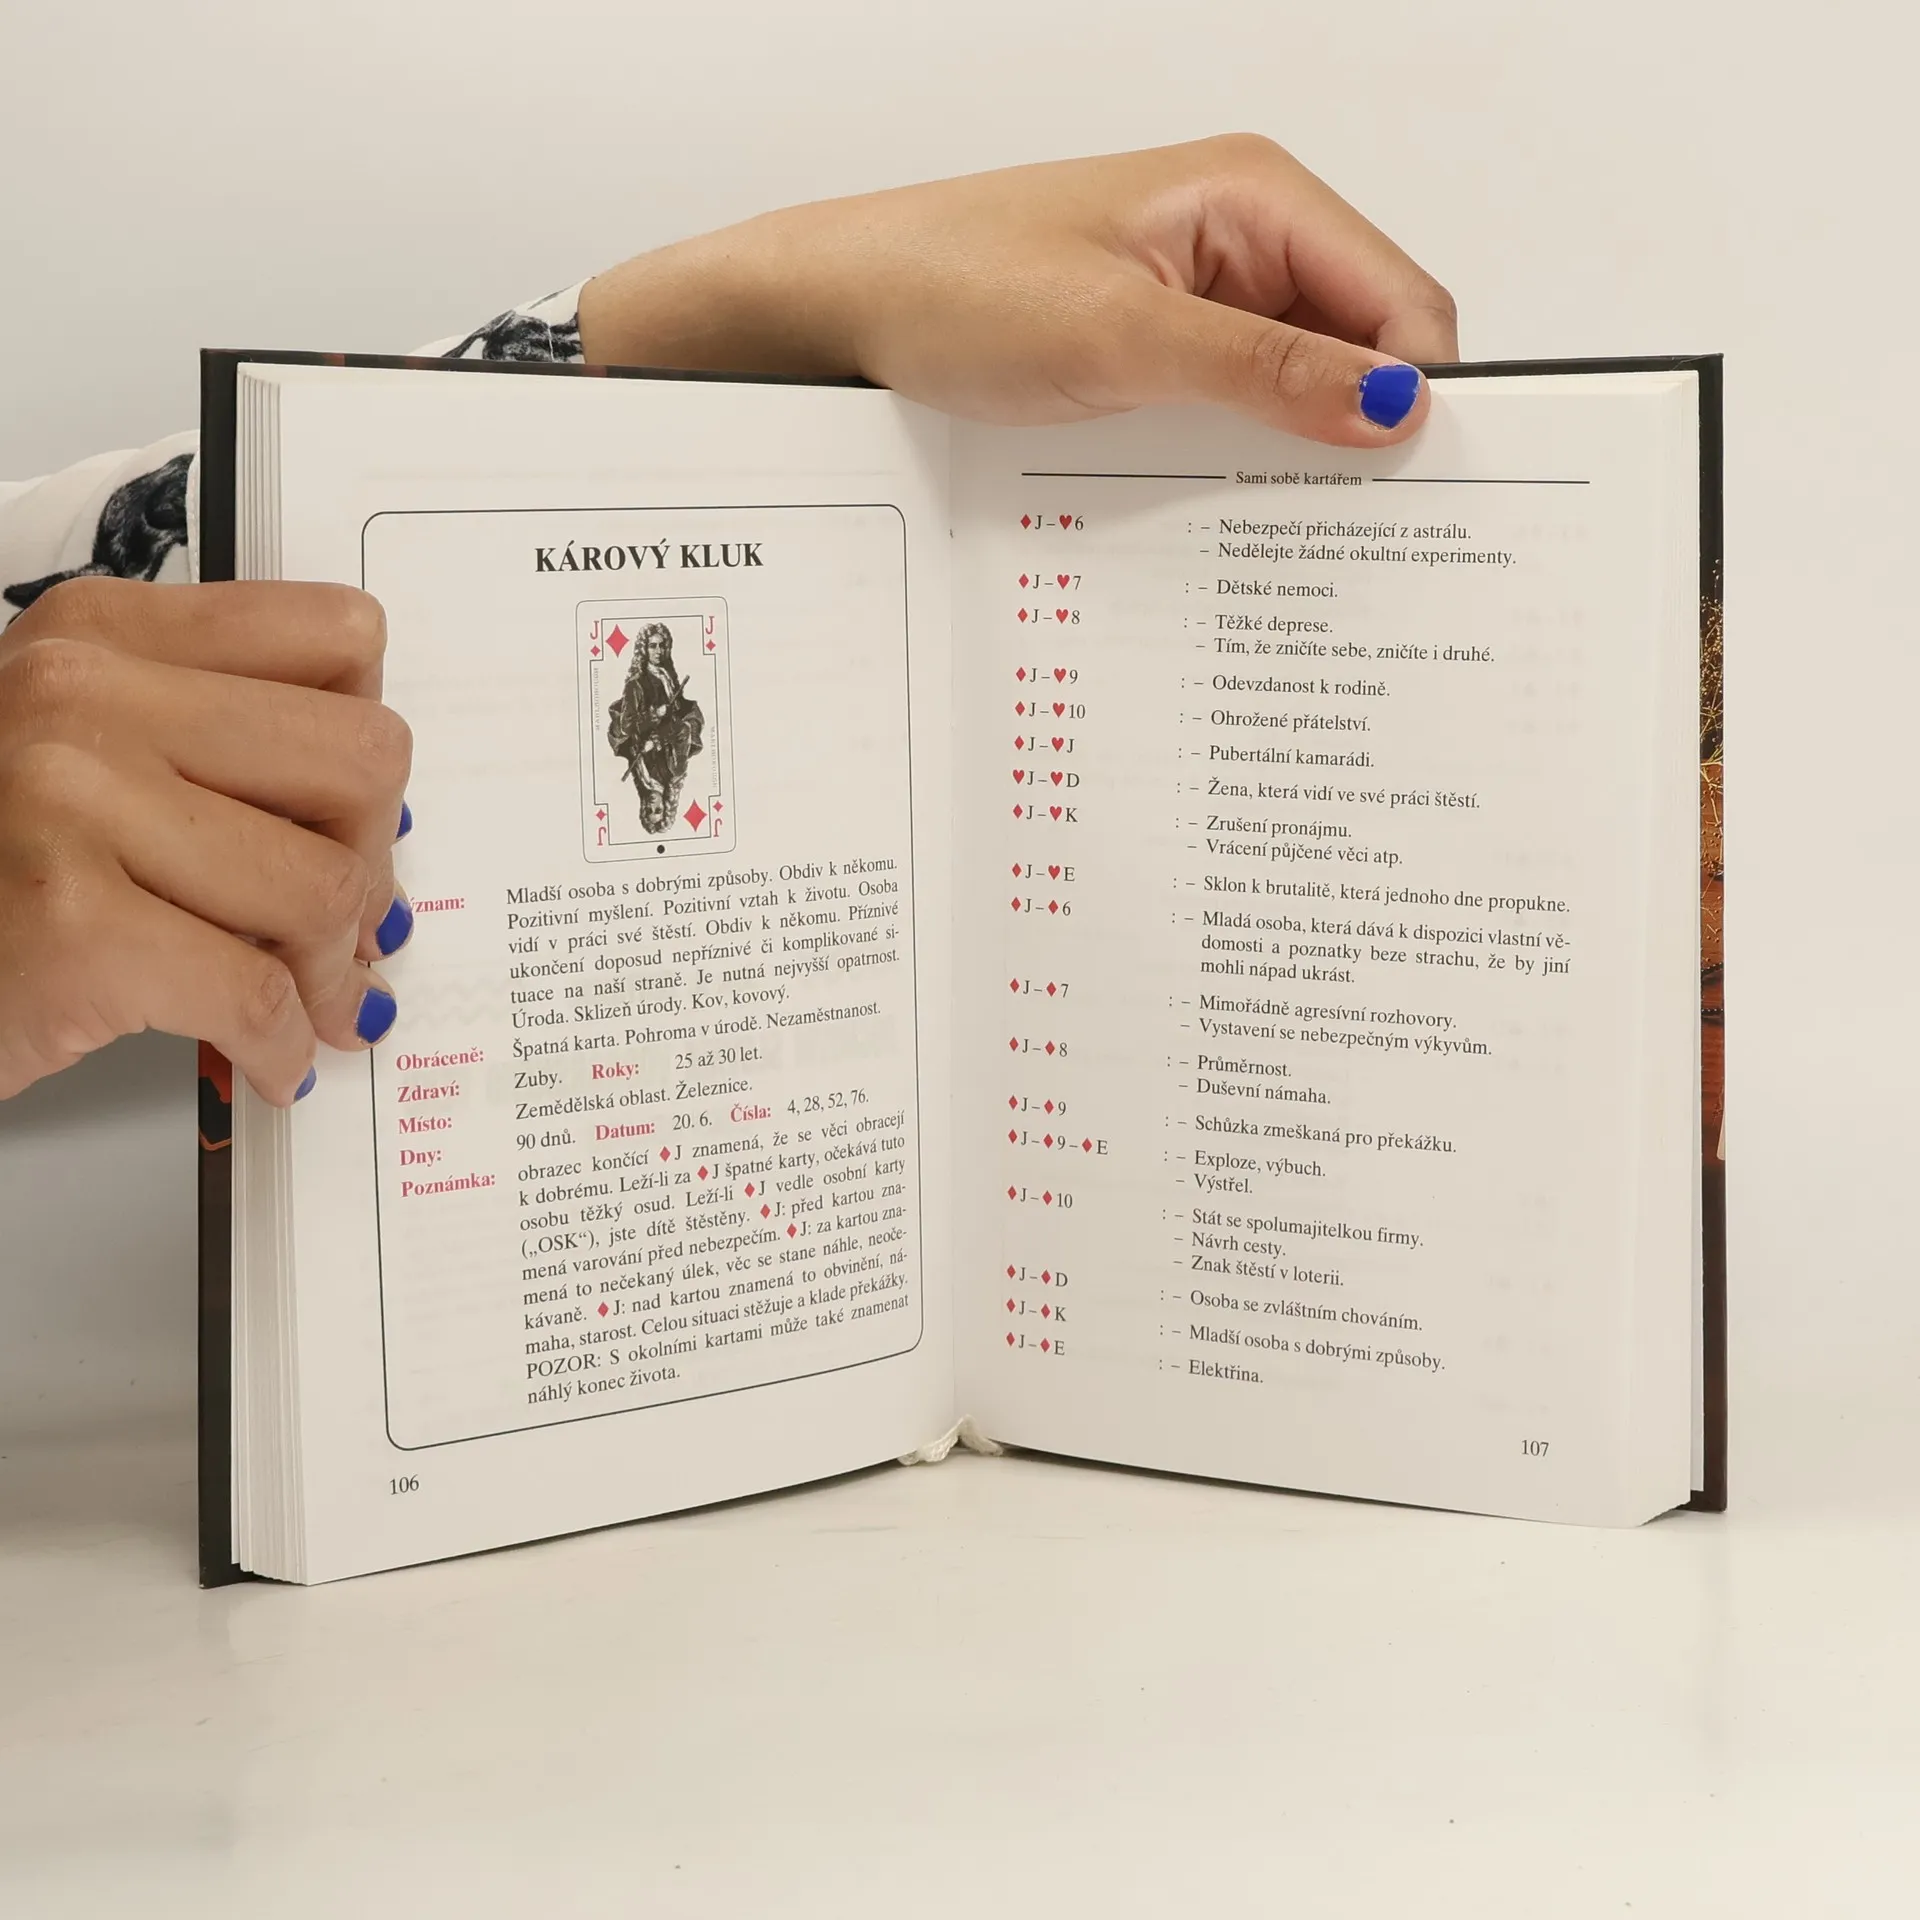 KÁROVÝ KLUK
J J
J J
Mladší osoba s dobrými způsoby. Obdiv k někomu.
Pozitivní myšlení. Pozitivní vztah k životu. Osoba
vidí v práci své štěstí. Obdiv k někomu. Příznivé
ukončení doposud nepříznivé či komplikované si-
tuace na naší straně. Je nutná nejvyšší opatrnost.
Úroda. Sklizeň úrody. Kov, kovový.
Obráceně: Špatná karta. Pohroma v úrodě. Nezaměstnanost.
Zdraví: Zuby. Roky: 25 až 30 let.
Místo: Zemědělská oblast. Železnice.
Dny: 90 dnů. Datum: 20. 6. Čísla: 4, 28, 52, 76.
Poznámka: obrazec končící ♦J znamená, že se věci obracejí
k dobrému. Leží-li za ♦J špatné karty, očekává tuto
osobu těžký osud. Leží-li ♦J vedle osobní karty
(„OSK“), jste dítě štěstěny. ♦J: před kartou zna-
mená varování před nebezpečím. ♦J: za kartou zna-
mená to nečekaný úlek, věc se stane náhle, neoče-
kávaně. ♦J: nad kartou znamená to obvinění, ná-
maha, starost. Celou situaci stěžuje a klade překážky.
POZOR: S okolními kartami může také znamenat
náhlý konec života.
106
Sami sobě kartářem
♦J–♥6 : – Nebezpečí přicházející z astrálu.
– Nedělejte žádné okultní experimenty.
♦J–♥7 : – Dětské nemoci.
♦J–♥8 : – Těžké deprese.
– Tím, že zničíte sebe, zničíte i druhé.
♦J–♥9 : – Odevzdanost k rodině.
♦J–♥10 : – Ohrožené přátelství.
♦J–♥J : – Pubertální kamarádi.
♥J–♥D : – Žena, která vidí ve své práci štěstí.
♦J–♥K : – Zrušení pronájmu.
– Vrácení půjčené věci atp.
♦J–♥E : – Sklon k brutalitě, která jednoho dne propukne.
♦J–♦6 : – Mladá osoba, která dává k dispozici vlastní vě-
domosti a poznatky beze strachu, že by jiní
mohli nápad ukrást.
♦J–♦7 : – Mimořádně agresívní rozhovory.
– Vystavení se nebezpečným výkyvům.
♦J–♦8 : – Průměrnost.
– Duševní námaha.
♦J–♦9 : – Schůzka zmeškaná pro překážku.
♦J–♦9–♦E : – Exploze, výbuch.
– Výstřel.
♦J–♦10 : – Stát se spolumajitelkou firmy.
– Návrh cesty.
– Znak štěstí v loterii.
♦J–♦D : – Osoba se zvláštním chováním.
♦J–♦K : – Mladší osoba s dobrými způsoby.
♦J–♦E : – Elektřina.
107